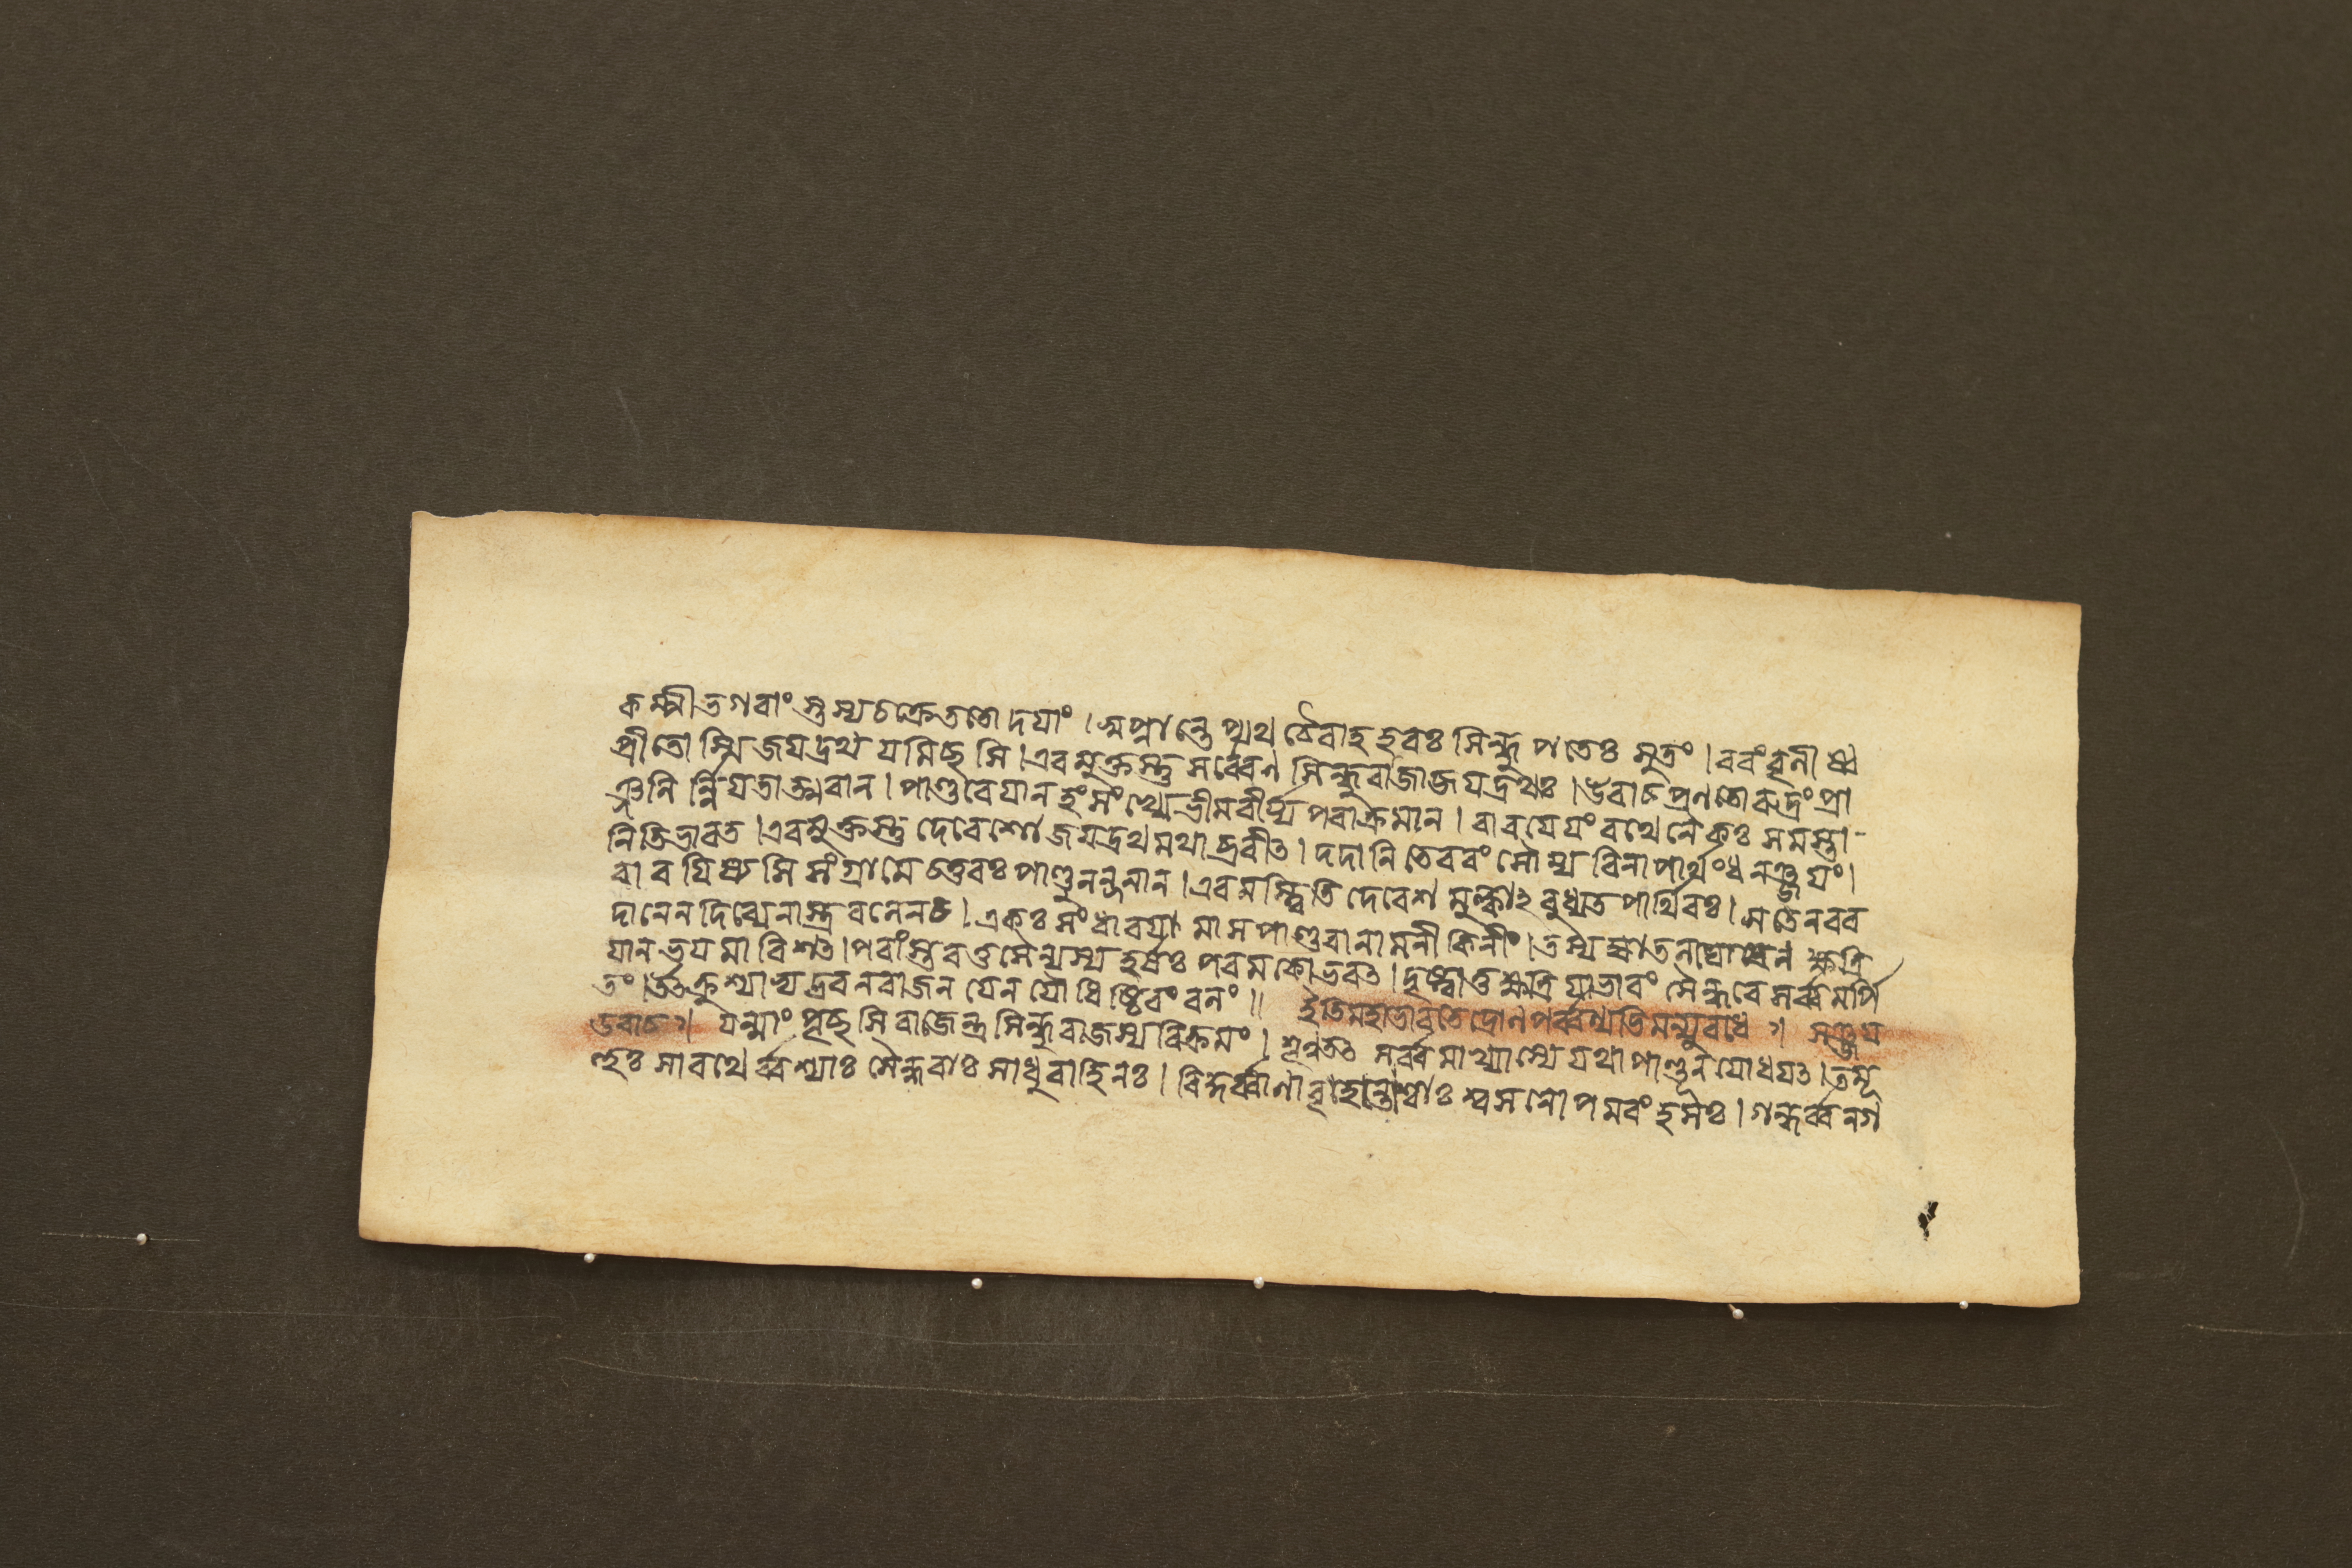 কম্পী ভগবাংস্তস্য চক্রে ততো দয়াং । স্বপ্নান্তে প্যথ চৈবাহ হরঃ সিন্ধুপতেঃ সুতং । বরং বৃনীষ্ব
প্রীতো স্মি জয়দ্রথ যমিচ্ছসি । এবমুক্তস্তু সর্ব্বেণ সিন্ধুরাজো জয়দ্রথঃ । উবাচ প্রণতো রুদ্রং প্রা
ঞ্জলির্নিয়তাত্মবান । পাণ্ডবেয়ানহং সংখ্যে ভীমবীর্য্যপরাক্রমান । বারয়েয়ং রথেনৈকঃ সমস্তা-
নিতি ভারত । এবমুক্তস্তু দেবেশো জয়দ্রথমথাব্রবীত । দদানি তে বরং সৌম্য বিনা পার্থং ধনঞ্জয়ং ।
বারয়িষ্যসি সংগ্রামে চতুরঃ পাণ্ডুনন্দনান । এবমস্ত্বিতি দেবেশমুক্ত্বা২বুধ্যত পার্থিবঃ । স তেন বর
দানেন দিব্যেনাস্ত্রবলেন চ । একঃ সংধারয়ামাস পাণ্ডবানামনীকিনীং । তস্য জ্যাতলঘোষেন ক্ষত্রি
য়ান ভয়মাবিশত । পরাংস্তু তব সৈন্যস্য হর্ষঃ পরমকোভবত । দৃষ্ট্বা তু ক্ষত্রিয়া ভারং সৈন্ধবে সর্ব্বমর্পি
তং । উৎক্রুশ্যাভ্যদ্রবন রাজন যেন যৌধিষ্ঠিরং বলং ॥ ইতি মহাভারতে দ্রোনপর্ব্বণ্যভিমন্যুবধে ॥ সঞ্জয়
উবাচ ॥ যন্মাং পৃচ্ছসি রাজেন্দ্র সিন্ধুরাজস্য বিক্রমং । শৃণু তত সর্ব্বমাখ্যাস্যে যথা পাণ্ডূনযোধয়ত । তমূ
হুঃ সারথের্ব্বশ্যাঃ সৈন্ধবাঃ সাধুবাহিনঃ । বিকুর্ব্বাণা বৃহন্তোশ্বাঃ শ্বসনোপমরংহসঃ । গন্ধর্ব্বনগ